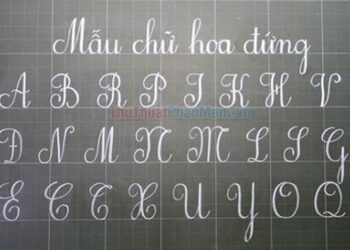 Mẫu chữ hoa đứng
A B R P I K H V
ThuThuatPhanMem.vn
Đ N M N M L S G
E C T X U Y O Q